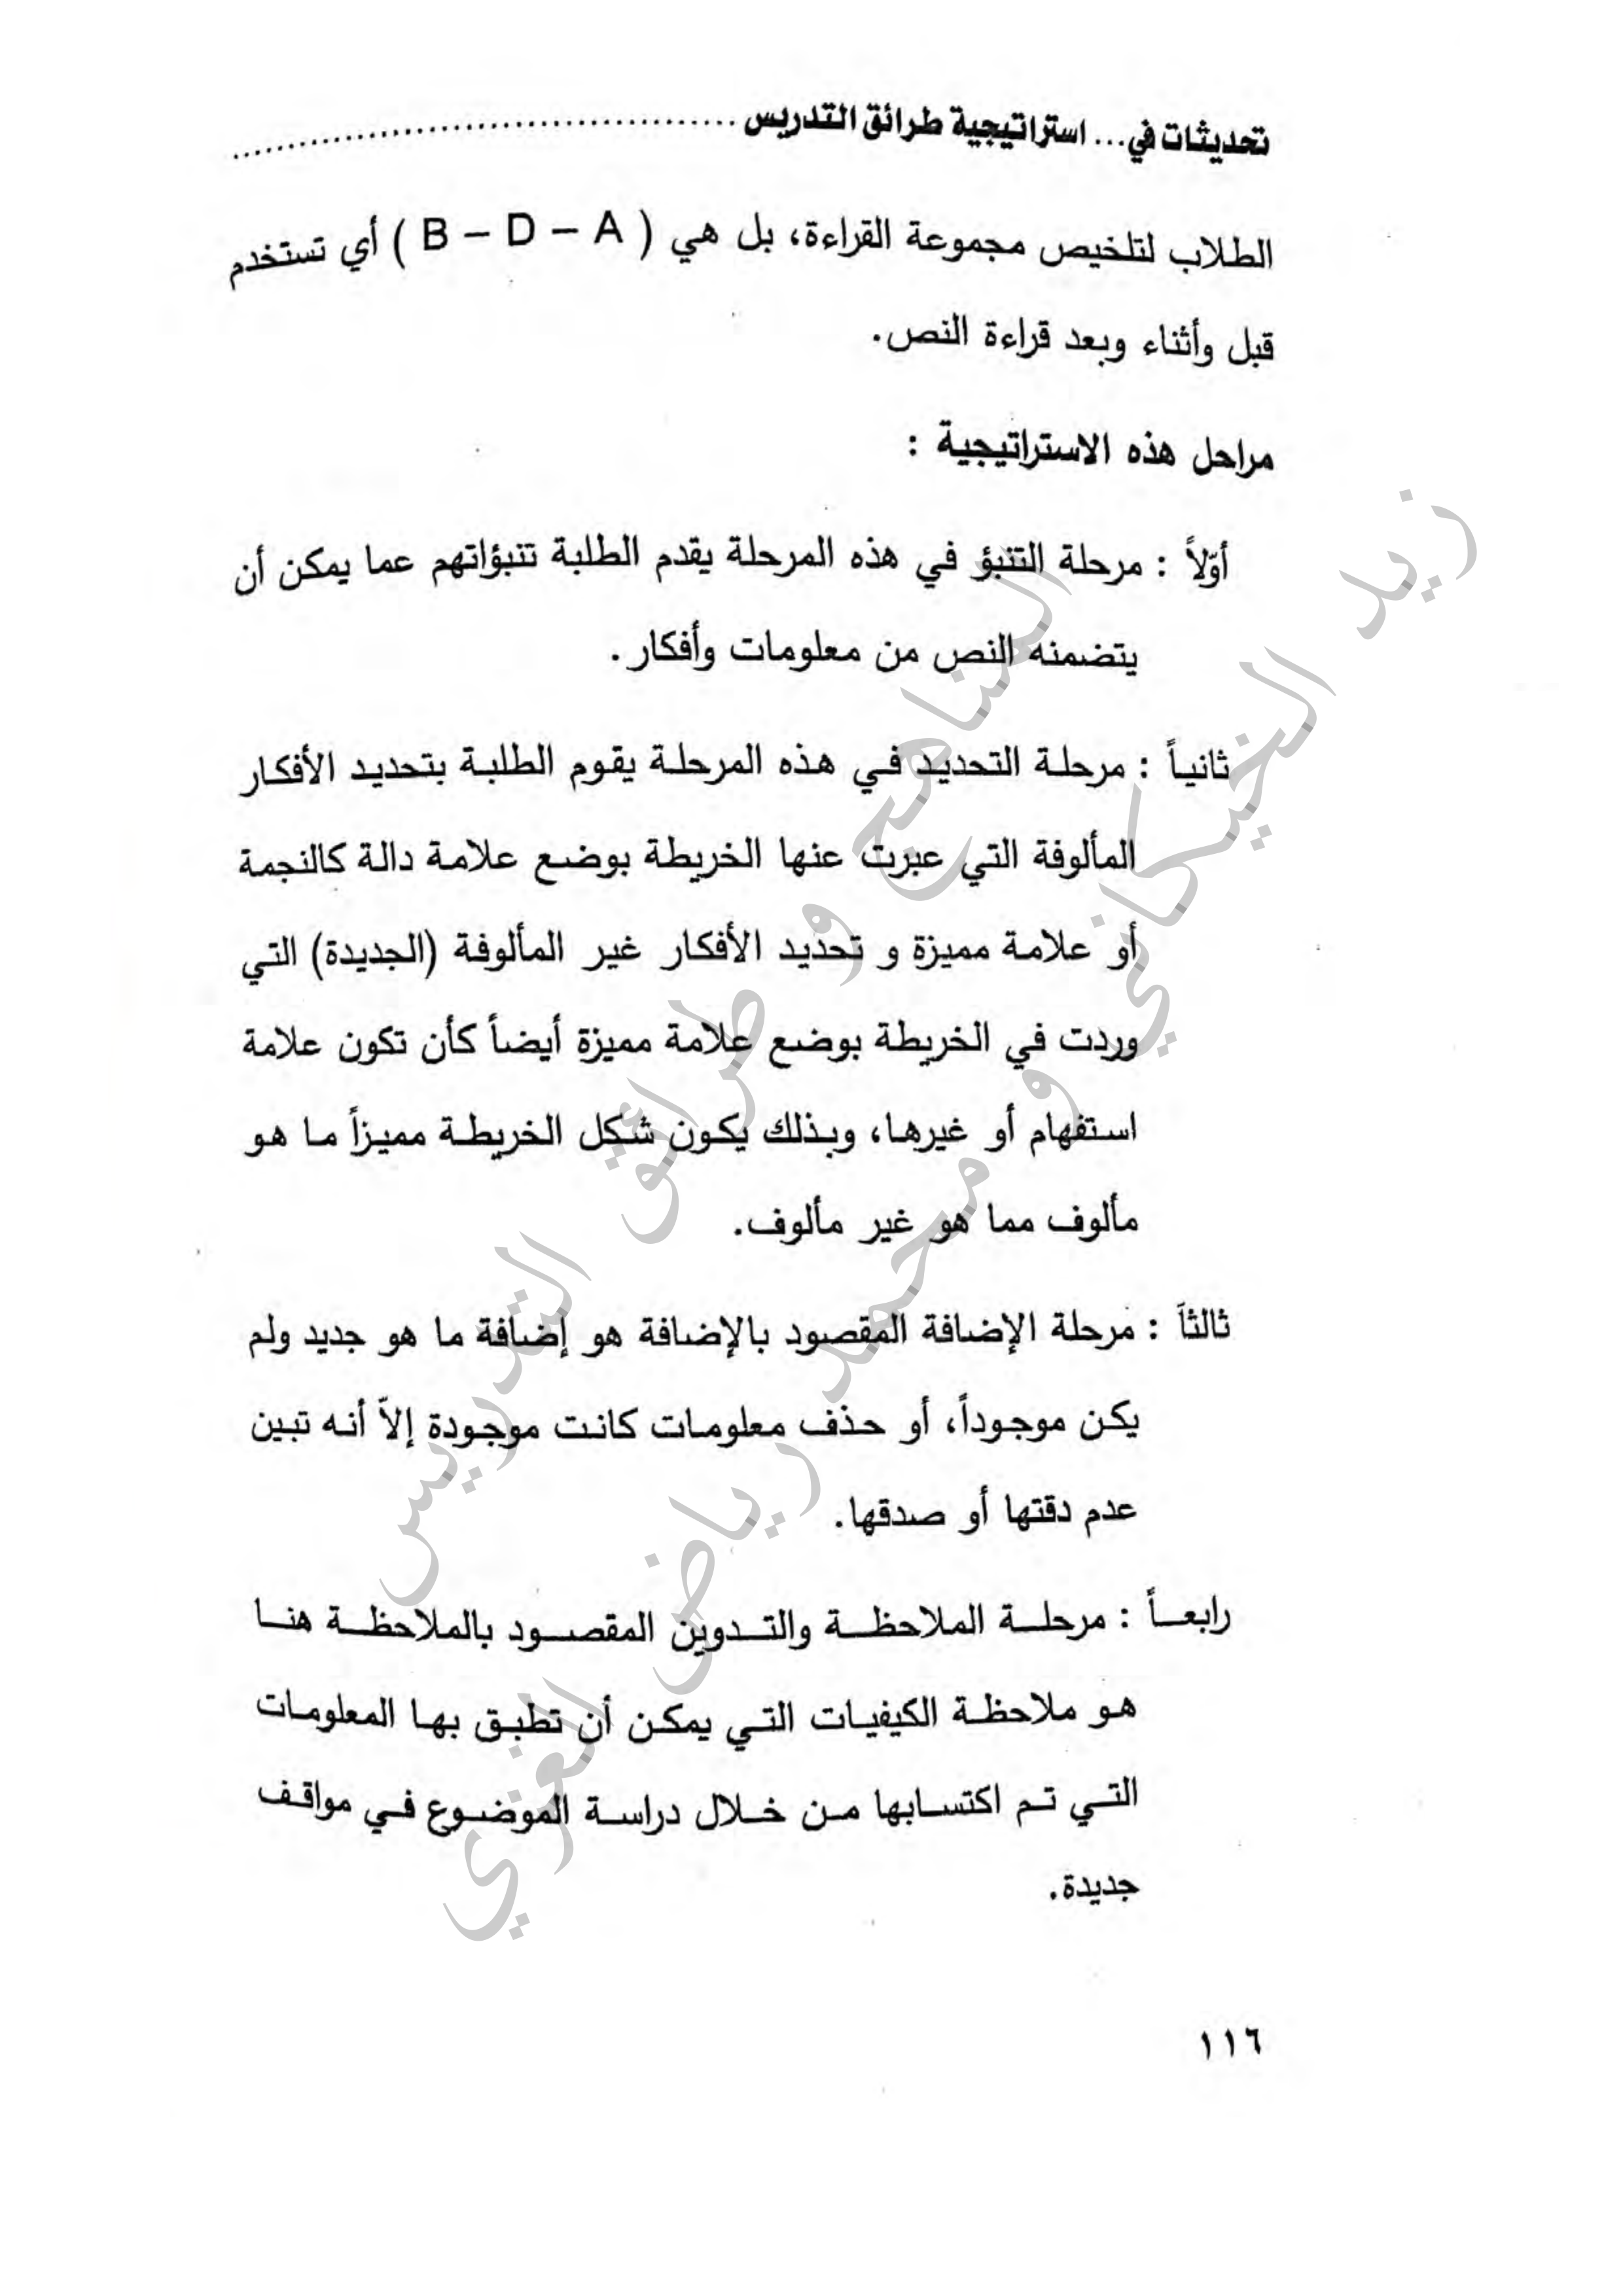 تحديثات في... استراتيجية طرائق التدريس
الطلاب لتلخيص مجموعة القراءة، بل هي ( B – D – A ) أي تستخدم
قبل وأثناء وبعد قراءة النص.
مراحل هذه الاستراتيجية :
أوّلاً : مرحلة التنبؤ في هذه المرحلة يقدم الطلبة تنبؤاتهم عما يمكن أن
يتضمنه النص من معلومات وأفكار.
ثانياً : مرحلة التحديد في هذه المرحلة يقوم الطلبة بتحديد الأفكار
المألوفة التي عبرت عنها الخريطة بوضع علامة دالة كالنجمة
أو علامة مميزة و تحديد الأفكار غير المألوفة (الجديدة) التي
وردت في الخريطة بوضع علامة مميزة أيضاً كأن تكون علامة
استفهام أو غيرها، وبذلك يكون شكل الخريطة مميزاً ما هو
مألوف مما هو غير مألوف.
ثالثاً : مرحلة الإضافة المقصود بالإضافة هو إضافة ما هو جديد ولم
يكن موجوداً، أو حذف معلومات كانت موجودة إلاّ أنه تبين
عدم دقتها أو صدقها.
رابعاً : مرحلة الملاحظة والتدوين المقصود بالملاحظة هنا
هو ملاحظة الكيفيات التي يمكن أن تطبق بها المعلومات
التي تم اكتسابها من خلال دراسة الموضوع في مواقف
جديدة.
١١٦
المناهج و طرائق التدريس
زيد الخيكاني و محمد رياض الغزي